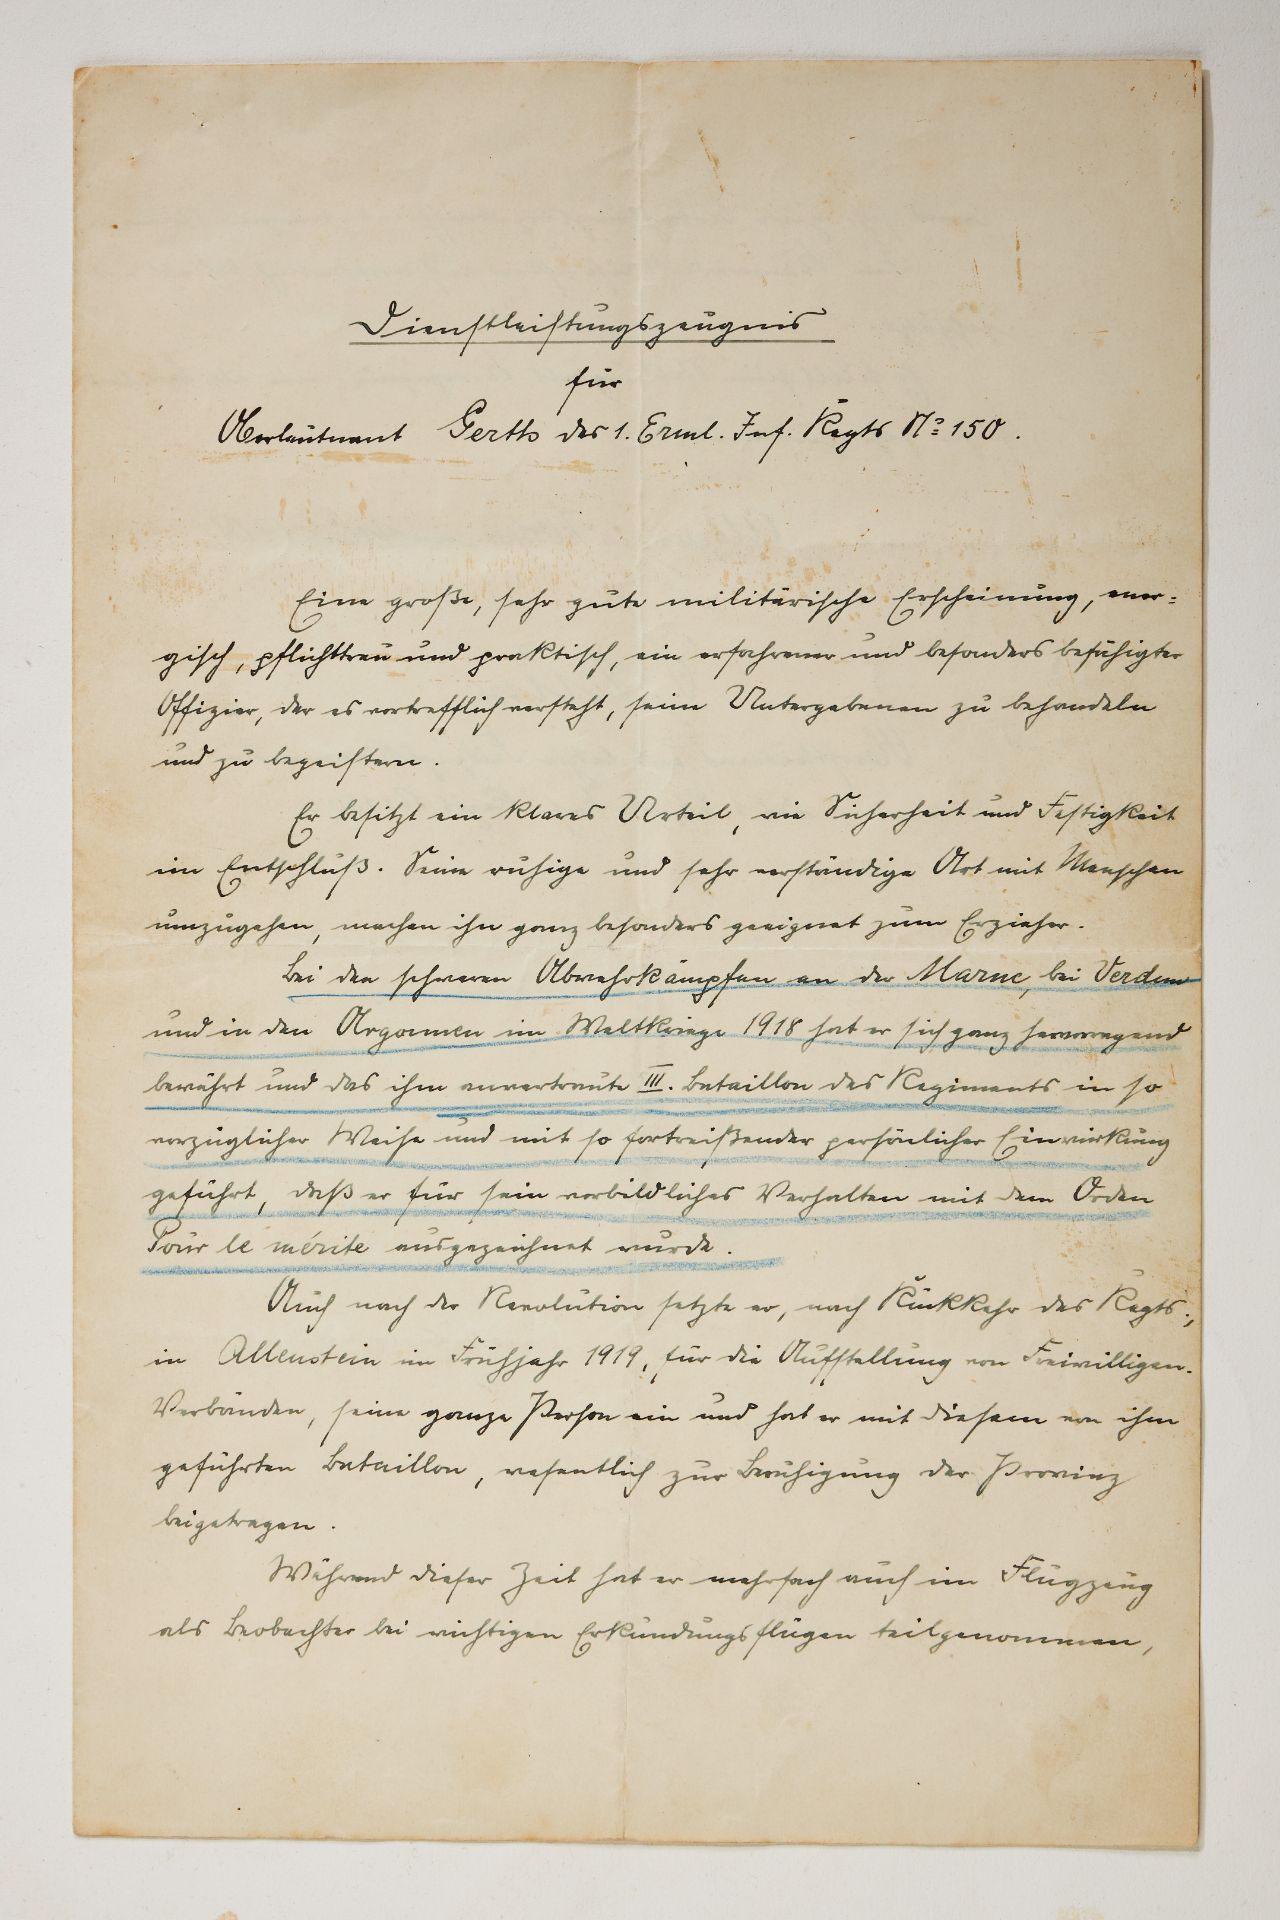 Dienstleistungszeugnis
für
Oberleutnant Gerth des 1. Erml. Inf. Regts No 150.
Eine große, sehr gute militärische Erscheinung, ener=
gisch, pflichttreu und praktisch, ein erfahrener und besonders befähigter
Offizier, der es vortrefflich versteht, seine Untergebenen zu behandeln
und zu begeistern.
Er besitzt ein klares Urteil, wie Sicherheit und Festigkeit
im Entschluß. Seine ruhige und sehr verständige Art mit Menschen
umzugehen, machen ihn ganz besonders geeignet zum Erzieher.
Bei den schweren Abwehrkämpfen an der Marne, bei Verdun
und in den Argonnen im Weltkriege 1918 hat er sich ganz hervorragend
bewährt und das ihm anvertraute III. Bataillon des Regiments in so
vorzüglicher Weise und mit so fortreißender persönlicher Einwirkung
geführt, daß er für sein vorbildliches Verhalten mit dem Orden
Pour le mérite ausgezeichnet wurde.
Auch nach der Revolution setzte er, nach Rückkehr des Regts.,
in Allenstein im Frühjahr 1919, für die Aufstellung von Freiwilligen-
Verbänden, seine ganze Person ein und hat er mit diesem von ihm
geführten Bataillon, wesentlich zur Beruhigung der Provinz
beigetragen.
Während dieser Zeit hat er mehrfach auch im Flugzeug
als Beobachter bei wichtigen Erkundungsflügen teilgenommen,